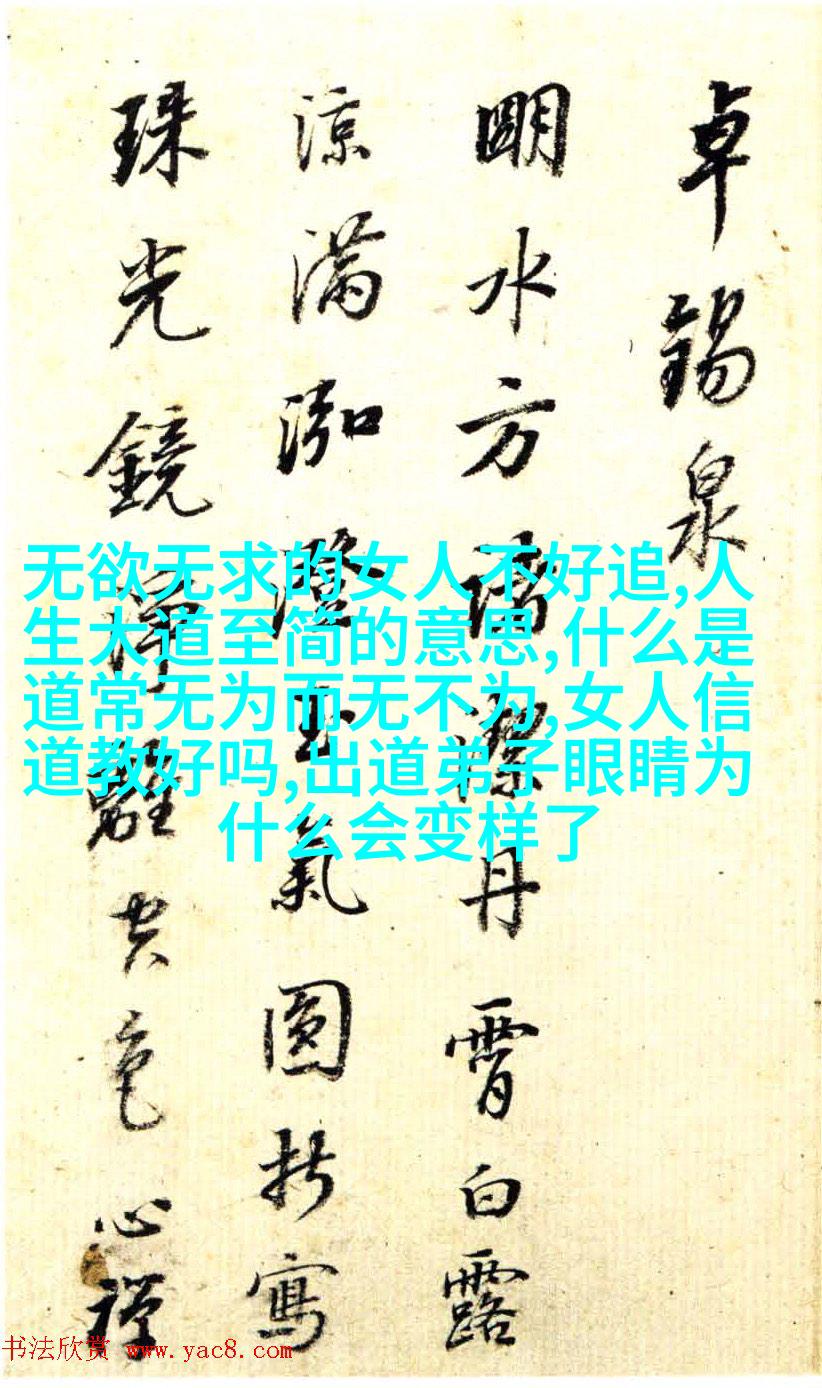 卓錫泉
朙水方諸潔丹霄白露
涼滿泓澄玉氣圓折寫
珠光鏡淨離空色心禪
无欲无求的女人不好追,人
生大道至简的意思,什么是
道常无为而无不为,女人信
道教好吗,出道弟子眼睛为
什么会变样了
书法欣赏 www.yac8.com